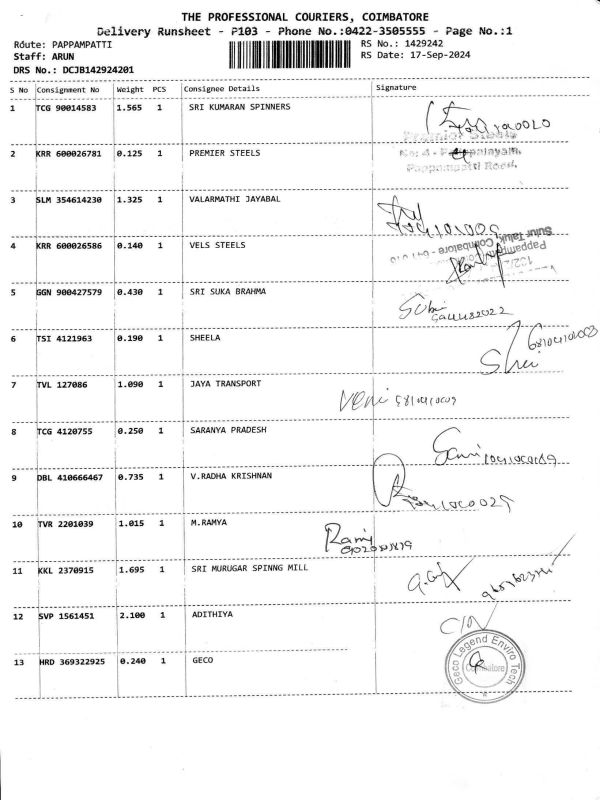 THE PROFESSIONAL COURIERS, COIMBATORE
Delivery Runsheet - P103 - Phone No.:0422-3505555 - Page No.:1
Route: PAPPAMPATTI
RS No.: 1429242
Staff: ARUN
RS Date: 17-Sep-2024
DRS No.: DCJB142924201
S No Consignment No Weight PCS Consignee Details Signature
1 TCG 90014583 1.565 1 SRI KUMARAN SPINNERS
Premier Steels
2 KRR 600026781 0.125 1 PREMIER STEELS
Pappampatti Road,
3 SLM 354614230 1.325 1 VALARMATHI JAYABAL
4 KRR 600026586 0.140 1 VELS STEELS
Sulur Taluk, Coimbatore - 641
5 GGN 900427579 0.430 1 SRI SUKA BRAHMA
6 TSI 4121963 0.190 1 SHEELA
7 TVL 127086 1.090 1 JAYA TRANSPORT
Veni
8 TCG 4120755 0.250 1 SARANYA PRADESH
9 DBL 410666467 0.735 1 V.RADHA KRISHNAN
10 TVR 2201039 1.015 1 M.RAMYA
Ramy
11 KKL 2370915 1.695 1 SRI MURUGAR SPINNG MILL
12 SVP 1561451 2.100 1 ADITHIYA
13 HRD 369322925 0.240 1 GECO
Geco Legend Enviro Tech
Coimbatore